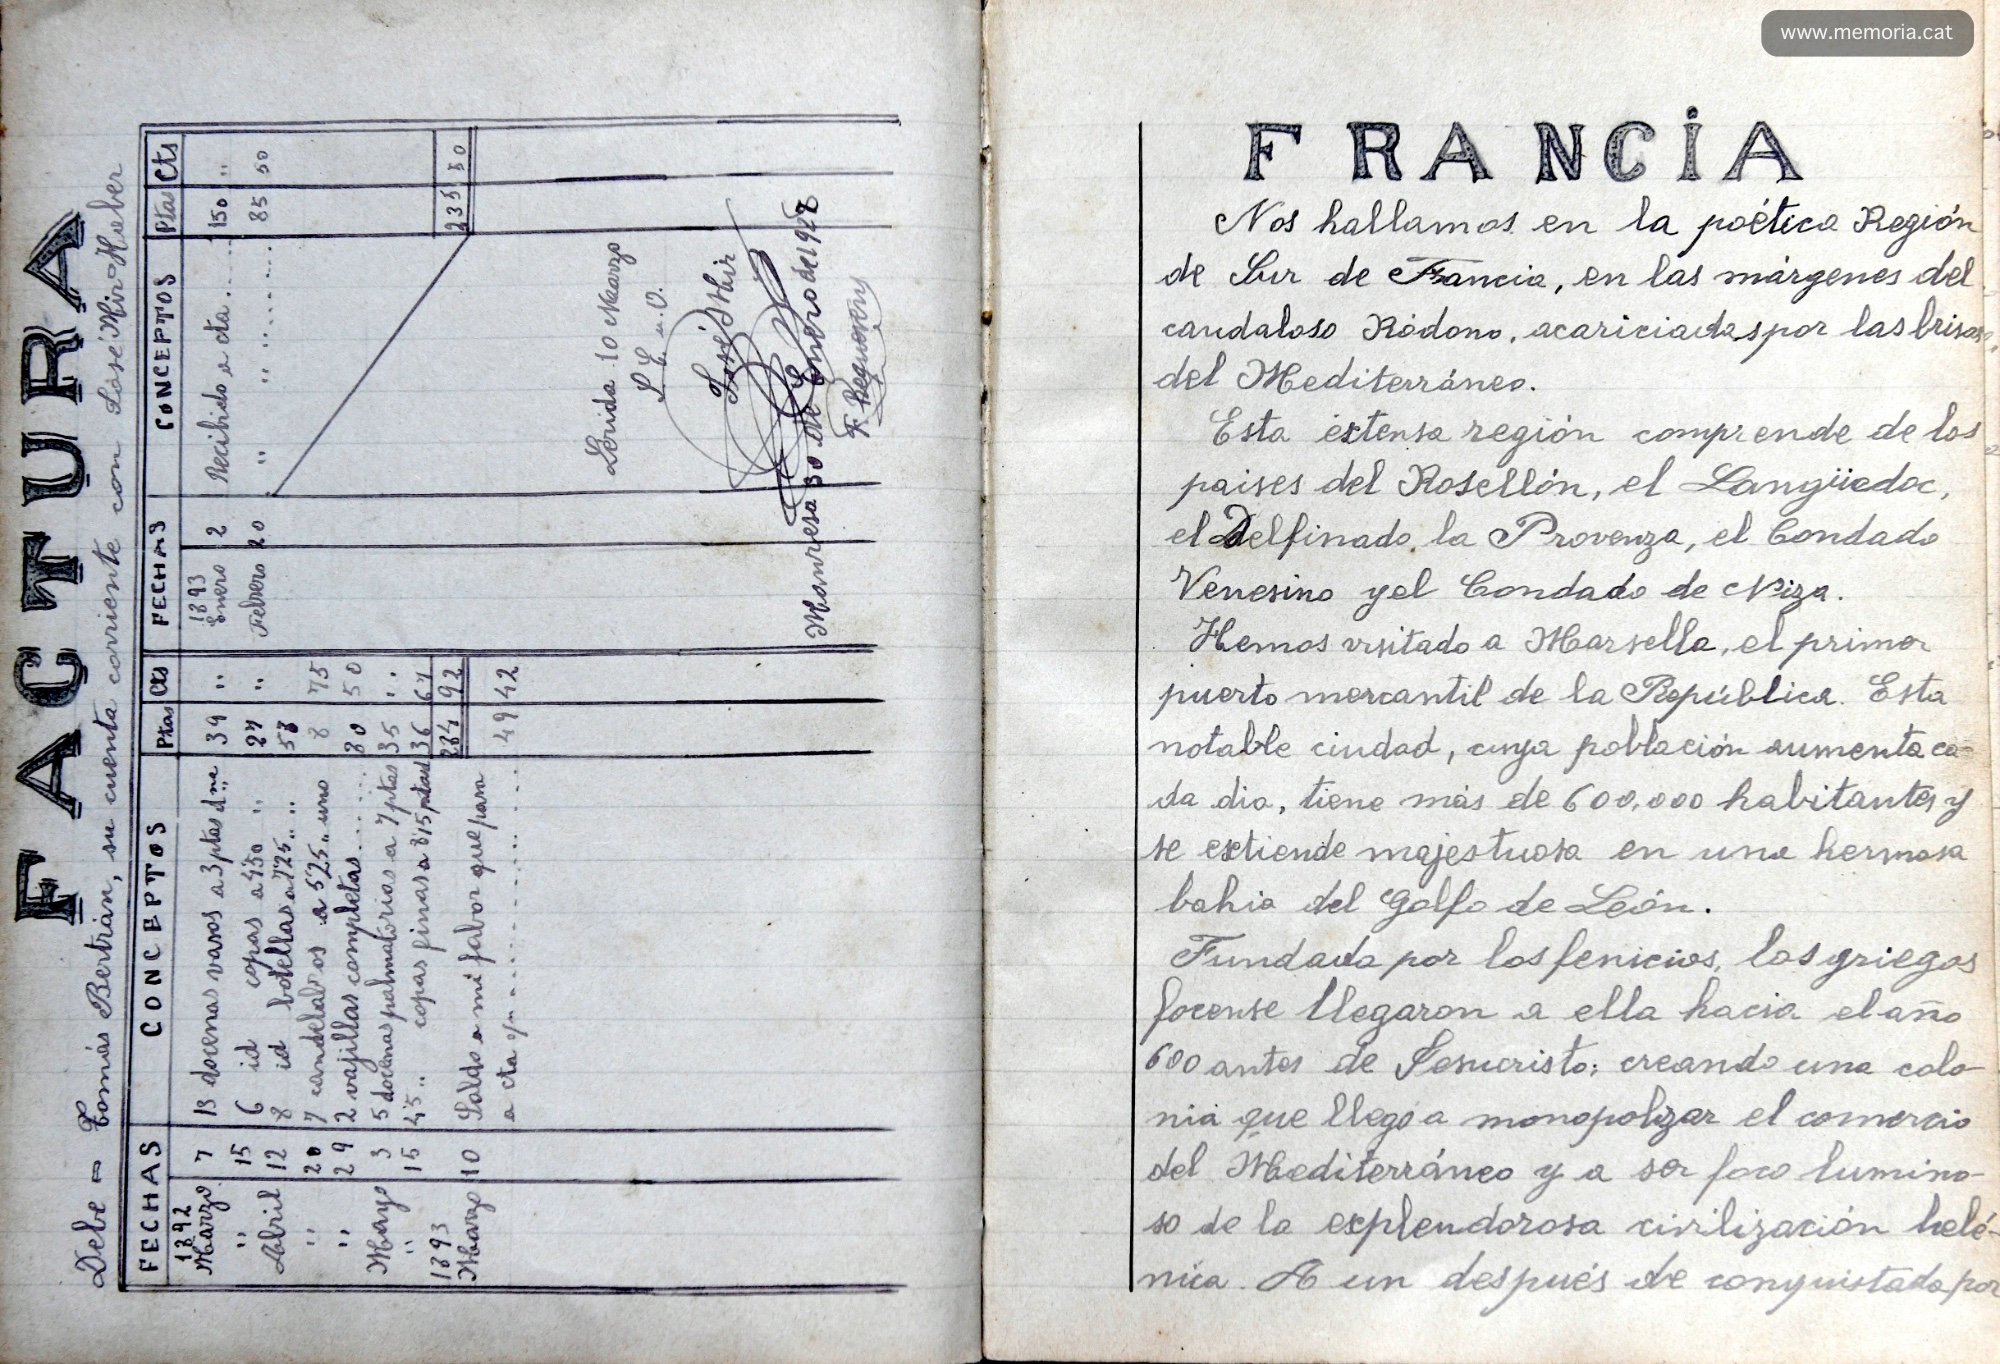 www.memoria.cat
FACTURA
Debe = Tomás Bertrán, su cuenta corriente con José Mir = Haber
FECHAS CONCEPTOS Ptas Cts FECHAS CONCEPTOS Ptas Cts
1892 1893
Marzo 7 13 docenas vasos a 3 ptas dna 39 " Enero 2 Recibido a cta 150 "
" 15 6 id copas a 4'50 " 27 " Febrero 20 " " 85 50
Abril 12 8 id botellas a 7'25 " " 58
" 20 7 candelabros a 5'25 " uno 8 75
" 29 2 vajillas completas 80 50
Mayo 3 5 docenas palmatorias a 7 ptas 35 "
" 15 4'5 " copas finas a 8'15 ptas 36 67
1893 284 92 235 50
Marzo 10 Saldo a mi fabor que paso
a cta 49 42
Lérida 10 Marzo
José Mir
Manresa 30 de Enero de 1928
F. Reguereny
FRANCIA
Nos hallamos en la poética Región
de Sur de Francia, en las márgenes del
caudaloso Ródono, acariciadas por las brisas
del Mediterráneo.
Esta extensa región comprende de los
paises del Rosellón, el Langüedoc,
el Delfinado, la Provenza, el Condado
Venesino y el Condado de Niza.
Hemos visitado a Marsella, el primer
puerto mercantil de la República. Esta
notable ciudad, cuya población aumenta ca-
da dia, tiene más de 600,000 habitantes y
se extiende majestuosa en una hermosa
bahia del Golfo de León.
Fundada por los fenicios, los griegos
focense llegaron a ella hacia el año
600 antes de Jesucristo; creando una colo-
nia que llegó a monopolizar el comercio
del Mediterráneo y a ser foco lumino-
so de la explendorosa civilización helé-
nica. A un después de conquistada por